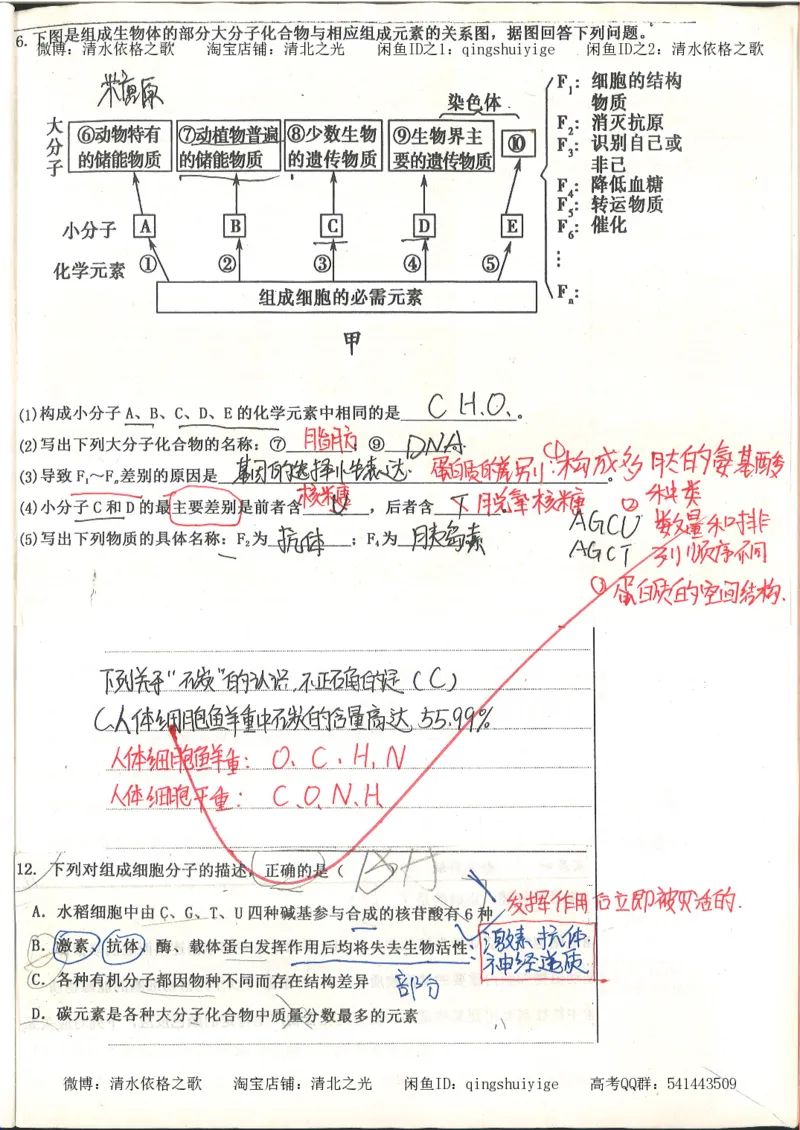 6. 下图是组成生物体的部分大分子化合物与相应组成元素的关系图，据图回答下列问题。
微博：清水依格之歌 淘宝店铺：清北之光 闲鱼ID之1：qingshuiyige 闲鱼ID之2：清水依格之歌
糖原
染色体
大分子
⑥动物特有的储能物质
⑦动植物普遍的储能物质
⑧少数生物的遗传物质
⑨生物界主要的遗传物质
⑩
F1：细胞的结构物质
F2：消灭抗原
F3：识别自己或非己
F4：降低血糖
F5：转运物质
F6：催化
⋮
Fn：
小分子 A B C D E
化学元素 ① ② ③ ④ ⑤
组成细胞的必需元素
甲
(1)构成小分子A、B、C、D、E的化学元素中相同的是 C H.O. 。
(2)写出下列大分子化合物的名称：⑦ 脂肪 ；⑨ DNA.
(3)导致F1～Fn差别的原因是 基因的选择性表达. 。
蛋白质的差别：①构成多肽的氨基酸种类
②数量和排列顺序不同
蛋白质的空间结构.
(4)小分子C和D的最主要差别是前者含 核糖 U ，后者含 T 脱氧核糖 。
AGCU
AGCT
(5)写出下列物质的具体名称：F2为 抗体 ；F4为 胰岛素
下列关于“碳”的认识,不正确的是（C）
C.人体细胞鲜重中碳的含量高达 55.99%
人体细胞鲜重： O、C、H、N
人体细胞干重： C、O、N、H
12. 下列对组成细胞分子的描述，正确的是（
A. 水稻细胞中由C、G、T、U四种碱基参与合成的核苷酸有6种
发挥作用后立即被灭活的.
B. 激素、抗体、酶、载体蛋白发挥作用后均将失去生物活性
激素.抗体.
神经递质
C. 各种有机分子都因物种不同而存在结构差异
部分
D. 碳元素是各种大分子化合物中质量分数最多的元素
微博：清水依格之歌 淘宝店铺：清北之光 闲鱼ID：qingshuiyige 高考QQ群：541443509